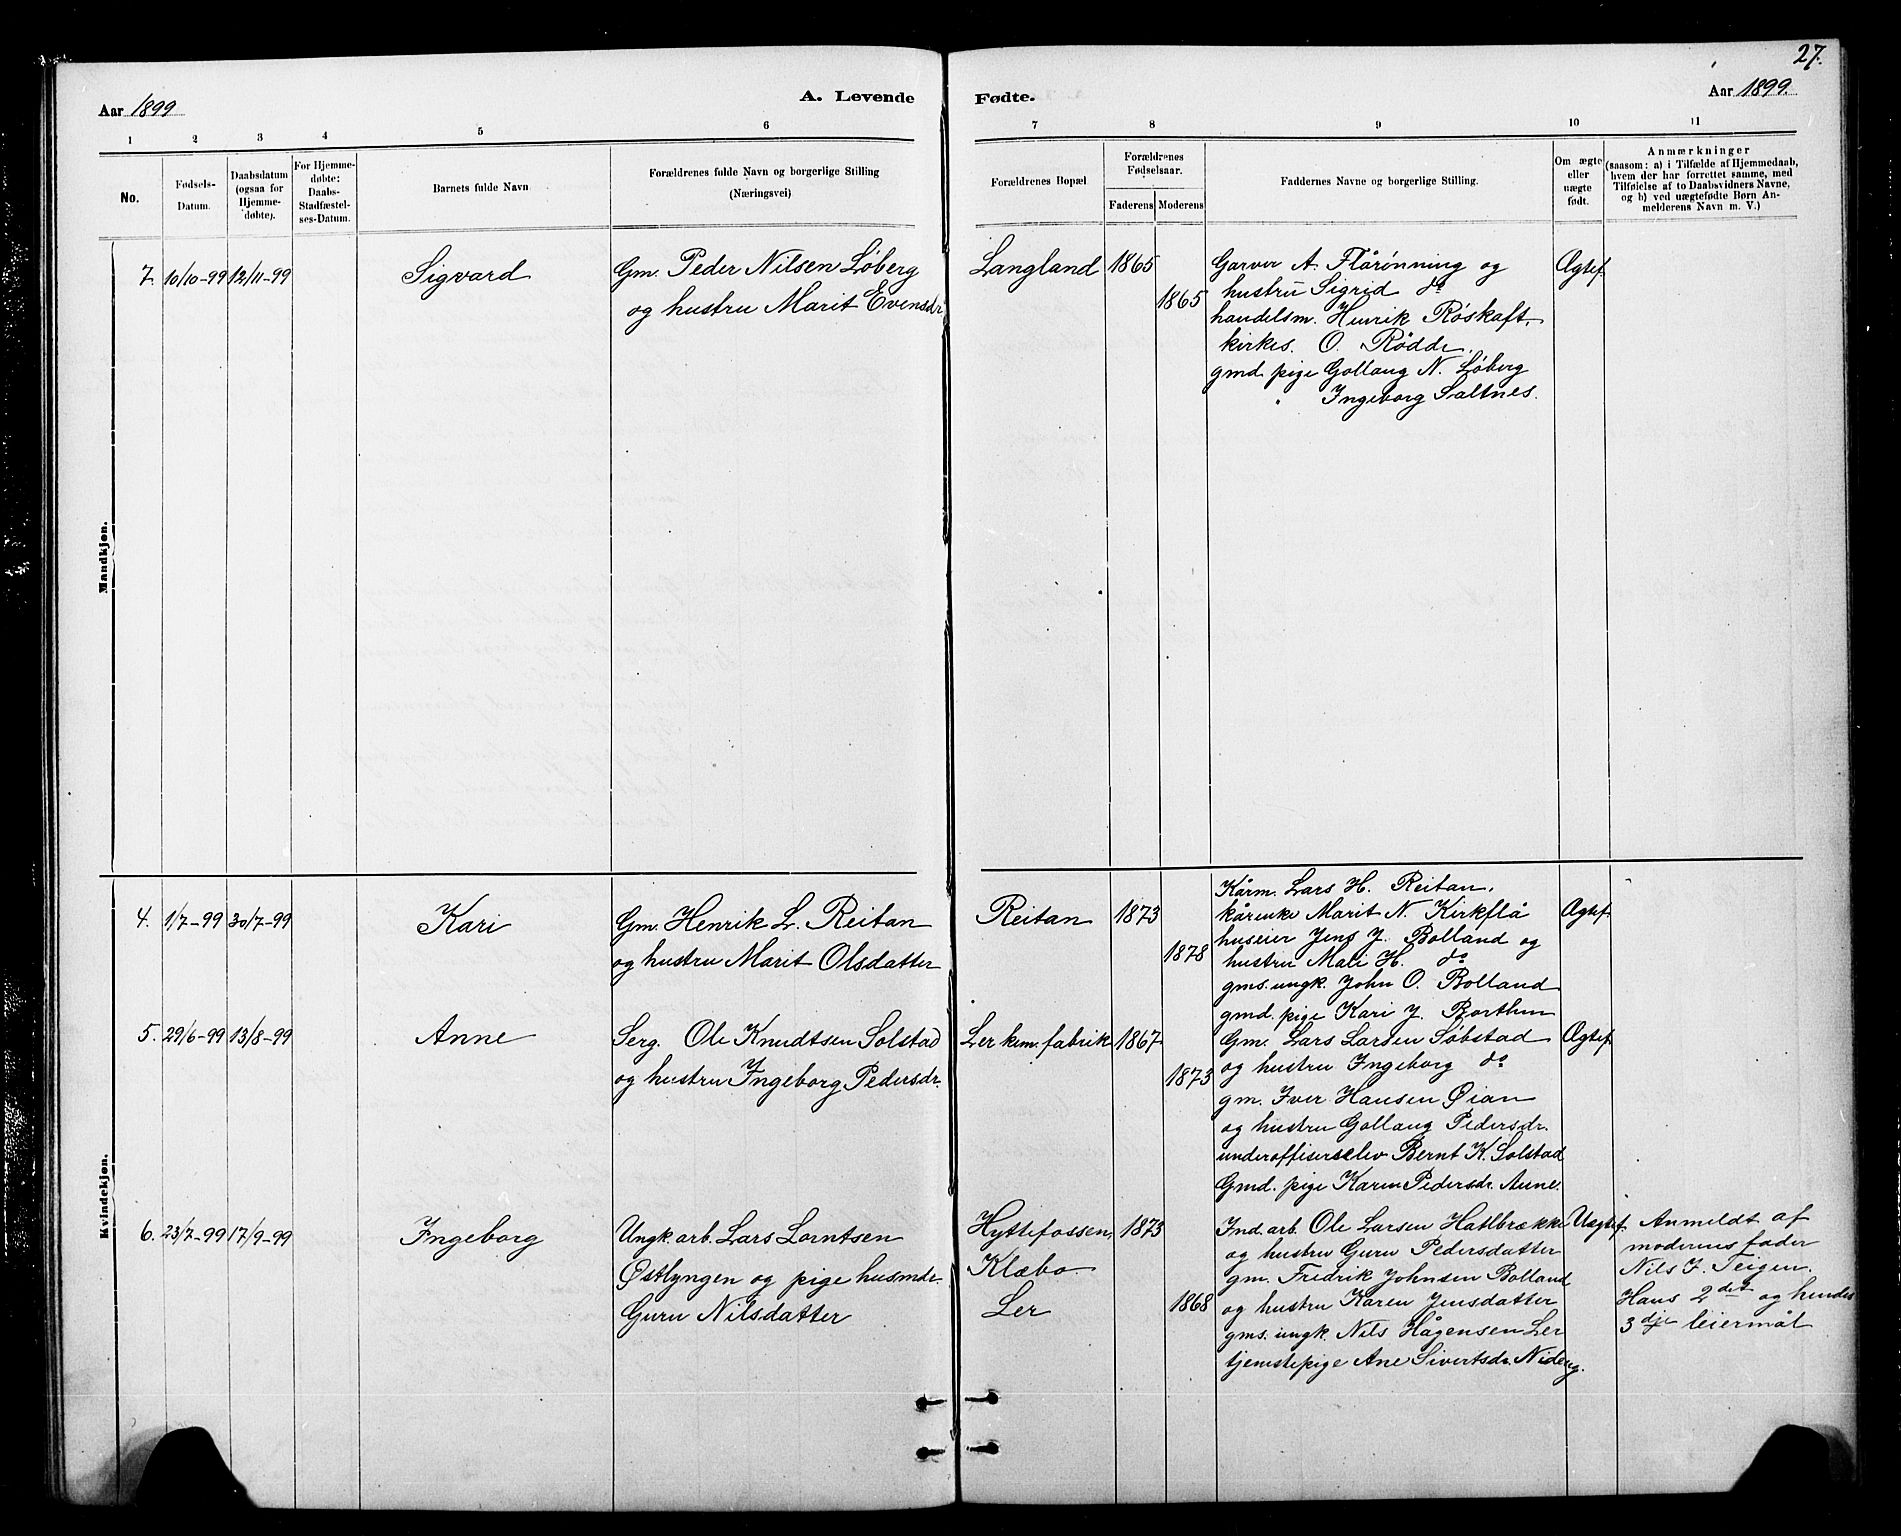 27.
Aar 1899
A. Levende
Fødte.
Aar 1899.
1 2 3 4 5 6 7 8 9 10 11
No.
Fødsels-
Datum.
Daabsdatum
(ogsaa for
Hjemme-
døbte).
For Hjemme-
døbte:
Daabs-
Stadfæstel-
ses-Datum.
Barnets fulde Navn
Forældrenes fulde Navn og borgerlige Stilling
(Næringsvei)
Forældrenes Bopæl
Forældrenes
Fødselsaar.
Faderens Moderens
Faddernes Navne og borgerlige Stilling.
Om ægte
eller
uægte
født.
Anmærkninger
(saasom: a) i Tilfælde af Hjemmedaab,
hvem der har forrettet samme, med
Tilføielse af to Daabsvidners Navne,
og b) ved uægtefødte Børn An-
melderens Navn m. V.)
Mandkjøn.
7. 10/10-99 12/11-99
Sigvard
Gm. Peder Nilsen Løberg
og hustru Marit Evensdr
Langland
1865
1865
Garver A. Flårønning og
hustru Sigrid do
handelsm. Henrik Røskaft.
kirkes. O. Rødde.
gmd. pige Gollaug N. Løberg
" Ingeborg Saltnes.
Ægtef.
Kvindekjøn.
4. 1/7-99 30/7-99
Kari
Gm. Henrik L. Reitan
og hustru Marit Olsdatter
Reitan
1873
1878
Kårm. Lars H. Reitan.
kårenke Marit N. Kirkflå
huseier Jens J. Bolland og
hustru Mali H. do
gms. ungk. John O. Bolland
gmd. pige Kari J. Borthen
Ægtef.
5. 29/6-99 13/8-99
Anne
Serg. Ole Knudtsen Solstad
og hustru Ingeborg Pedersdr.
Ler kem. fabrik
1867
1873
Gm. Lars Larsen Søbstad
og hustru Ingeborg do
gm. Iver Hansen Øian
og hustru Gollaug Pedersdr.
underoffiserselev Bernt K. Solstad
Gmd. pige Karen Pedersdr. Aune.
Ægtef.
6. 23/7-99 17/9-99
Ingeborg
Ungk. arb. Lars Lorntsen
Østlyngen og pige husmdr.
Guru Nilsdatter
Hyttefossen,
Klæbo.
Ler
1873
1868
Ind. arb. Ole Larsen Hatlbrække
og hustru Guru Pedersdatter
gm. Fredrik Johnsen Bolland
og hustru Karen Jensdatter
gms. ungk. Nils Hågensen Ler
tjenstepige Ane Sivertsdr. Nideng.
Uægtef.
Anmeldt af
moderens fader
Nils J. Teigen.
Hans 2det og hendes
3dje leiermål